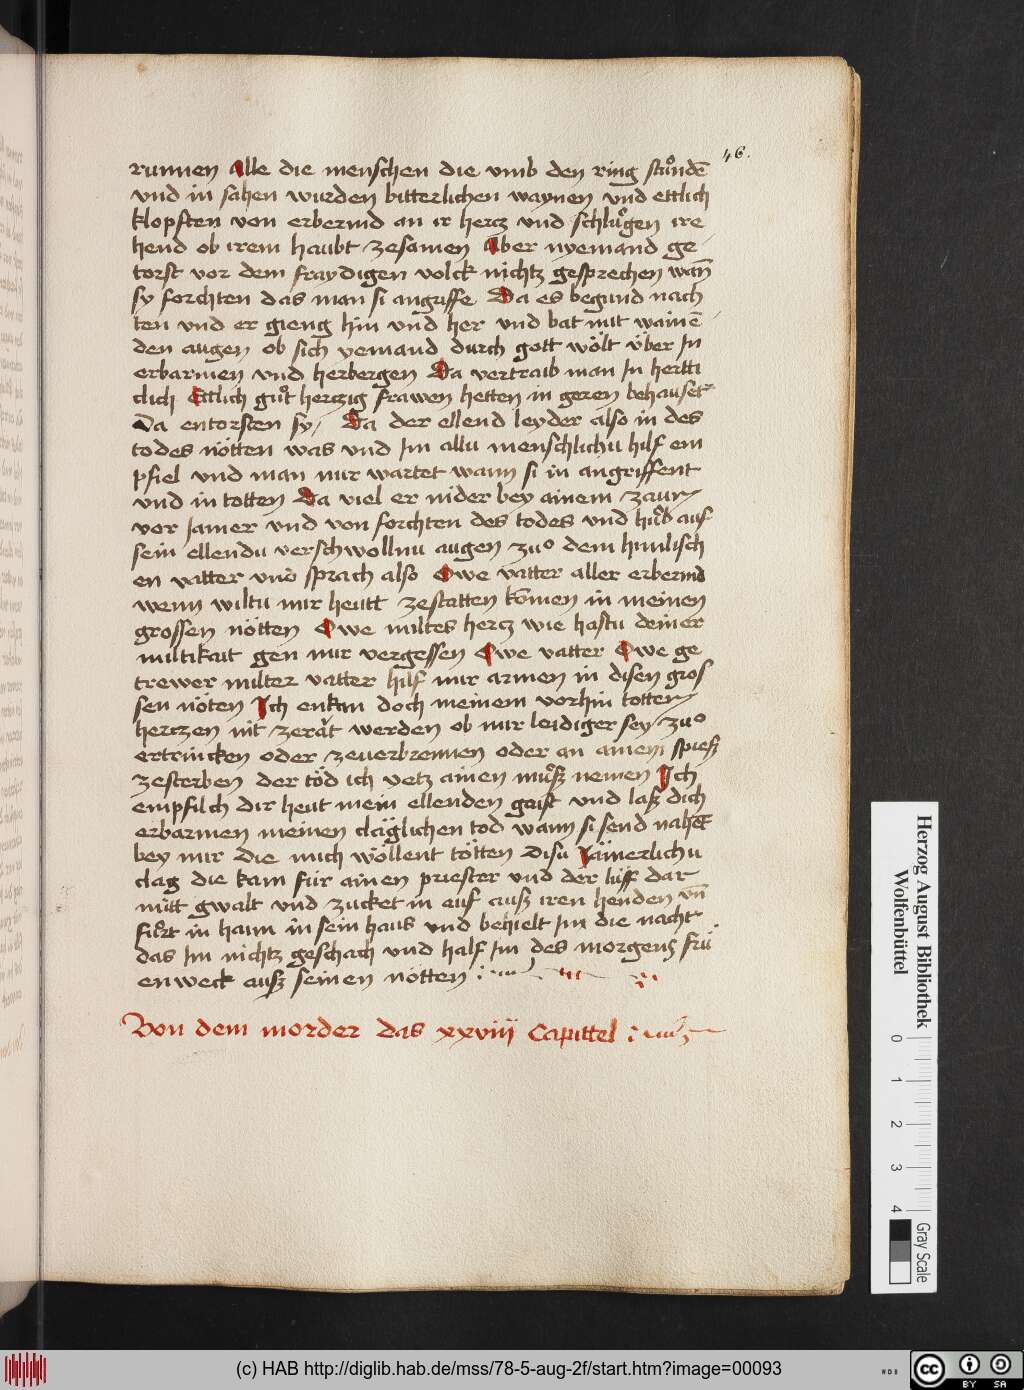 46.
runnen Alle die menschen die vmb den ring stuͦndē
vnd in sahen wurden bitterlichen waynen vnd ettlich
klopften von erbermd an ir hercz vnd schluͦgen ire
hend ob irem haubt zesamen Aber nyemand ge
torst vor dem fraydigen volck nichtz gesprechen wañ
sy forchten das man si angriffe Da es begund nach
ten vnd er gieng hin vnd her vnd bat mit wainē
den augen ob sich yemand durch gott wölt über In
erbarmen vnd herbergen Da vertraib man In hertti
clich Ettlich guͦt herczig frawen hetten in geren behauset
Da entorsten sy / Da der ellend leyder also in des
todes nötten was vnd Im allu menschlichu hilf em
pfiel vnd man nur wartet wann si in angriffent
vnd in totten Da viel er nider bey ainem zaun
vor Jamer vnd von forchten des todes vnd huͦb auf
sein ellendu verschwollnu augen zuͦ dem himlisch
en vatter vnd sprach also Owe vatter aller erbermd
wenn wiltu mir heutt zestatten komen in meinen
grossen nötten Owe miltes hercz wie hastu deiner
miltikait gen mir vergessen Owe vatter Owe ge
trewer milter vatter hilf mir armen in disen gros
sen nöten Ich enkan doch meinem vorhin totten
herczen nit zerät werden ob mir leidiger sey zuͦ
ertrincken oder zeuerbrennen oder an ainem spiesz
zesterben der töd ich yetz ainen muͦsz nemen Ich
empfilch dir heut mein ellenden gaist vnd lasz dich
erbarmen meinen cläglichen tod wann si send nahet
bey mir die mich wöllent tötten Disu Jämerlichu
clag die kam für ainen priester vnd der luff dar
mitt gwalt vnd zucket in auf ausz iren henden vñ
fuͦrt in haim in sein haus vnd behielt Im die nacht
das Im nichtz geschach vnd half Im des morgens frü
enweck ausz seinen nötten
Von dem morder das xxviij Capittel
Herzog August Bibliothek
Wolfenbüttel
0 1 2 3 4
Gray Scale
(c) HAB http://diglib.hab.de/mss/78-5-aug-2f/start.htm?image=00093
cc BY SA